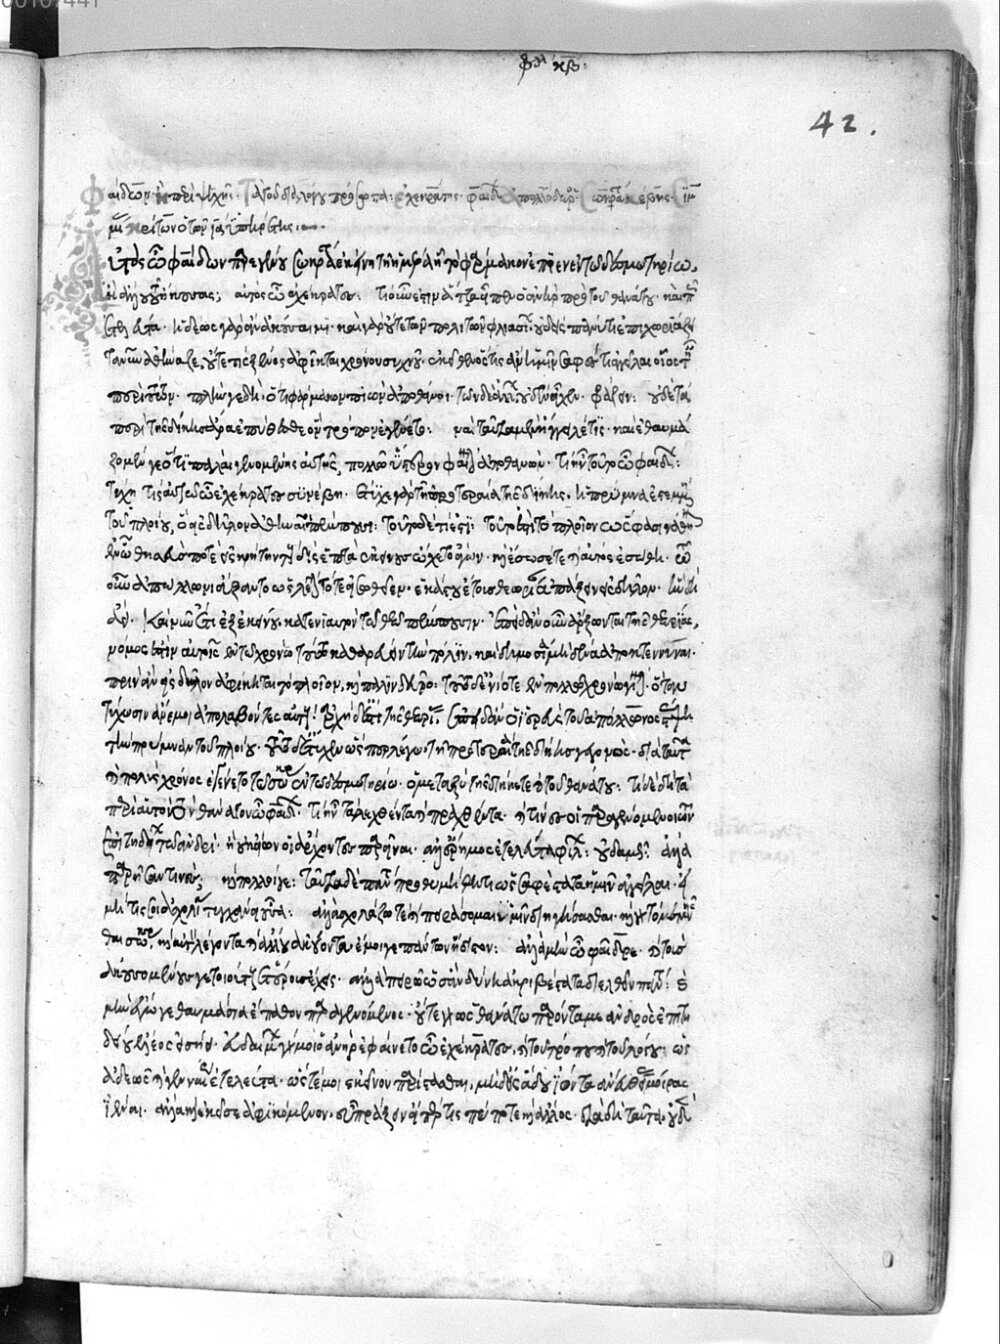 00107441
42.
Φαίδων ἢ περὶ ψυχῆς· Τὰ τοῦ διαλόγου πρόσωπα· ἐχεκράτης· φαίδων ἀπολλόδωρος Σωκράτης κέβης· Σιμ
μίας κρίτων ὁ τῶν ἕνδεκα ὑπηρέτης·
Αὐτὸς ὦ φαίδων παρεγένου Σωκράτει ἐκείνῃ τῇ ἡμέρᾳ ᾗ τὸ φάρμακον ἔπιεν ἐν τῷ δεσμωτηρίῳ,
ἢ ἄλλου του ἤκουσας; αὐτὸς ὦ ἐχέκρατες· τί οὖν δή ἐστιν ἅττα εἶπεν ὁ ἀνὴρ πρὸ τοῦ θανάτου· καὶ πῶς
ἐτελεύτα· ἡδέως γὰρ ἂν ἀκούσαιμι· καὶ γὰρ οὔτε τῶν πολιτῶν φλιασίων οὐδεὶς πάνυ τι ἐπιχωριάζει
τανῦν ἀθήναζε, οὔτε τις ξένος ἀφῖκται χρόνου συχνοῦ ἐκεῖθεν ὅστις ἂν ἡμῖν σαφές τι ἀγγεῖλαι οἷός τ' ἦν
περὶ τούτων· πλήν γε δὴ ὅτι φάρμακον πιὼν ἀποθάνοι· τῶν δὲ ἄλλων οὐδὲν εἶχεν φράζειν: οὐδὲ τὰ
περὶ τῆς δίκης ἄρα ἐπύθεσθε ὃν τρόπον ἐγένετο: ναί· ταῦτα μὲν ἡμῖν ἤγγειλέ τις· καὶ ἐθαυμά
ζομέν γε ὅτι πάλαι γενομένης αὐτῆς, πολλῷ ὕστερον φαίνεται ἀποθανών· τί οὖν ἦν τοῦτο ὦ φαίδων:
τύχη τις αὐτῷ ὦ ἐχέκρατες συνέβη· ἔτυχε γὰρ τῇ προτεραίᾳ τῆς δίκης, ἡ πρύμνα ἐστεμμένη
τοῦ πλοίου, ὃ εἰς δῆλον ἀθηναῖοι πέμπουσι: τοῦτο δὲ τί ἐστι: τοῦτό ἐστι τὸ πλοῖον ὥς φασιν ἀθηναῖοι
ἐν ᾧ θησεύς ποτε εἰς κρήτην τοὺς δὶς ἑπτὰ ἐκείνους ᾤχετο ἄγων· καὶ ἔσωσέ τε καὶ αὐτὸς ἐσώθη· τῷ
οὖν ἀπόλλωνι εὔξαντο ὡς λέγεται τότε εἰ σωθεῖεν· ἑκάστου ἔτους θεωρίαν ἀπάξειν εἰς δῆλον· ἣν δὴ
ἀεὶ. καὶ νῦν ἔτι ἐξ ἐκείνου κατ' ἐνιαυτὸν τῷ θεῷ πέμπουσιν· ἐπειδὰν οὖν ἄρξωνται τῆς θεωρίας,
νόμος ἐστὶν αὐτοῖς ἐν τῷ χρόνῳ τούτῳ καθαρεύειν τὴν πόλιν· καὶ δημοσίᾳ μηδένα ἀποκτιννύναι·
πρὶν ἂν εἰς δῆλον ἀφίκηται τὸ πλοῖον, καὶ πάλιν δεῦρο: τοῦτο δ' ἐνίοτε ἐν πολλῷ χρόνῳ γίνεται· ὅταν
τύχωσιν ἄνεμοι ἀπολαβόντες αὐτούς: ἀρχὴ δ' ἐστὶ τῆς θεωρίας ἐπειδὰν ὁ ἱερεὺς τοῦ ἀπόλλωνος στέψῃ
τὴν πρύμναν τοῦ πλοίου· τοῦτο δ' ἔτυχεν ὥσπερ λέγω· τῇ προτεραίᾳ τῆς δίκης γεγονός· διὰ ταῦτα
καὶ πολὺς χρόνος ἐγένετο τῷ σωκράτει ἐν τῷ δεσμωτηρίῳ. ὁ μεταξὺ τῆς δίκης τε καὶ τοῦ θανάτου: τί δὲ δὴ τὰ
περὶ αὐτὸν τὸν θάνατον ὦ φαίδων· τί ἦν τὰ λεχθέντα καὶ πραχθέντα· καὶ τίνες οἱ παραγενόμενοι τῶν
ἐπιτηδείων τῷ ἀνδρί· ἢ οὐκ εἴων οἱ ἄρχοντες παρεῖναι· ἀλλ' ἔρημος ἐτελεύτα φίλων: οὐδαμῶς· ἀλλὰ
παρῆσάν τινες, καὶ πολλοί γε: ταῦτα δὴ πάντα προθυμήθητι ὡς σαφέστατα ἡμῖν ἀγγεῖλαι· εἰ
μή τίς σοι ἀσχολία τυγχάνει οὖσα: ἀλλὰ σχολάζω τε καὶ πειράσομαι ὑμῖν διηγήσασθαι· καὶ γὰρ τὸ μεμνῆ
σθαι σωκράτους, καὶ αὐτὸν λέγοντα καὶ ἄλλου ἀκούοντα ἔμοιγε πάντων ἥδιστον: ἀλλὰ μὴν ὦ φαίδων. καὶ τοὺς
ἀκουσομένους γε τοιούτους ἑτέρους ἔχεις· ἀλλὰ πειρῶ ὡς ἂν δύνῃ ἀκριβέστατα διελθεῖν πάντα: καὶ
μὴν ἔγωγε θαυμάσια ἔπαθον παραγενόμενος· οὔτε γὰρ ὡς θανάτῳ παρόντα με ἀνδρὸς ἐπιτη
δείου ἔλεος εἰσῄει· εὐδαίμων γάρ μοι ὁ ἀνὴρ ἐφαίνετο ὦ ἐχέκρατες, καὶ τοῦ τρόπου καὶ τῶν λόγων: ὡς
ἀδεῶς καὶ γενναίως ἐτελεύτα· ὥστε μοι ἐκεῖνον παρίστασθαι, μηδ' εἰς ᾅδου ἰόντα ἄνευ θείας μοίρας
ἰέναι· ἀλλὰ κἀκεῖσε ἀφικόμενον· εὖ πράξειν εἴπερ τις πώποτε καὶ ἄλλος· διὰ δὴ ταῦτα οὐδὲν